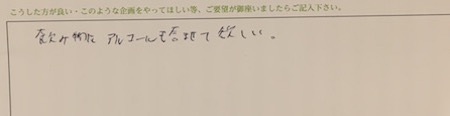 こうした方が良い・このような企画をやってほしい等、ご要望が御座いましたらご記入下さい。
飲み物は アルコールも含ませて欲しい。